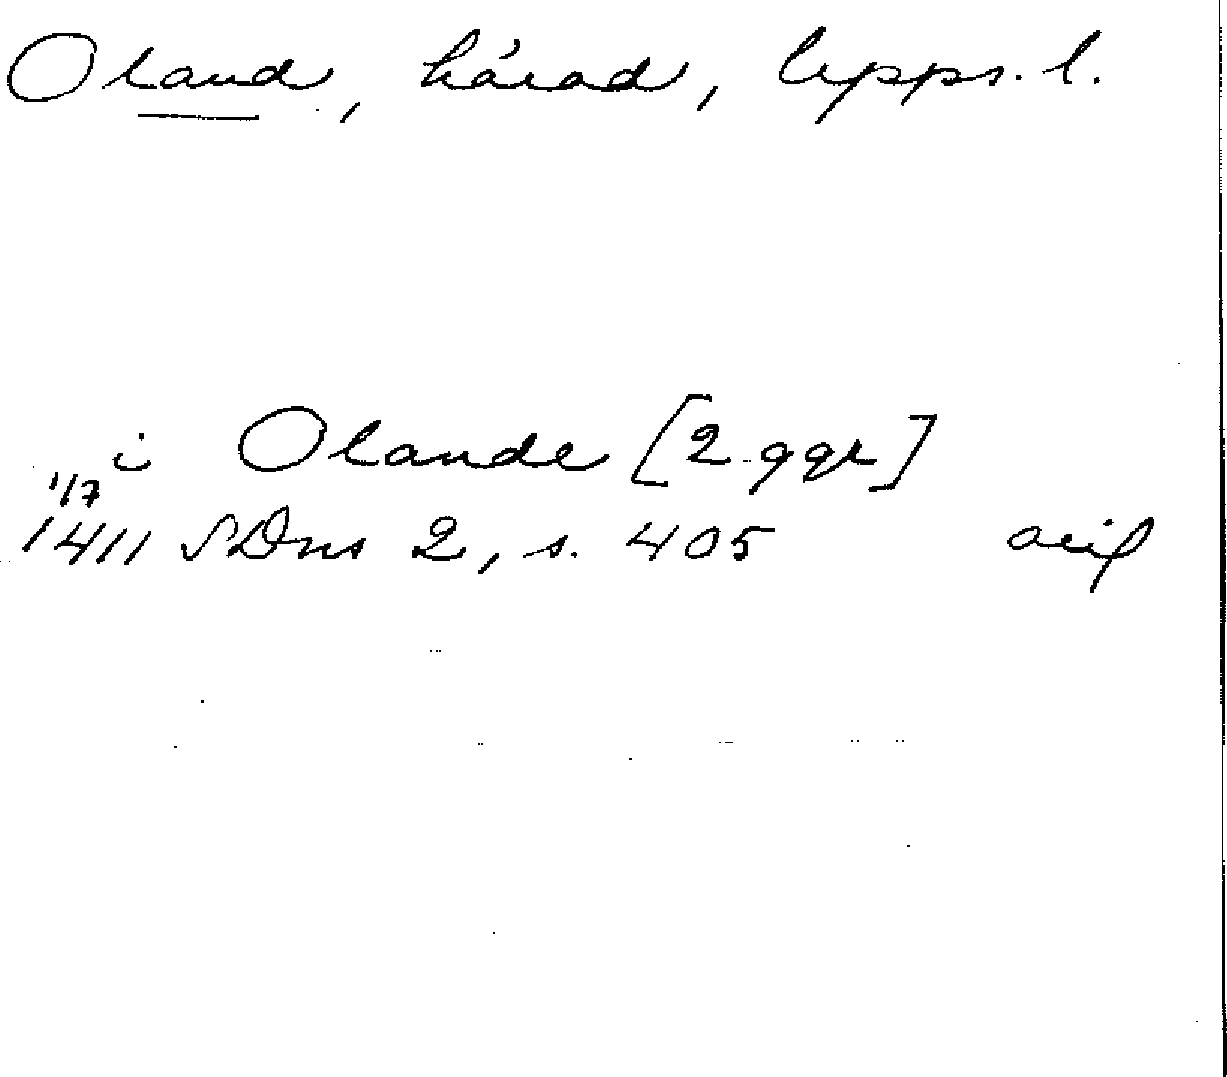 Oland, härad, Upps. l.
i Olande [2 ggr]
1/7
1411 SDns 2, s. 405